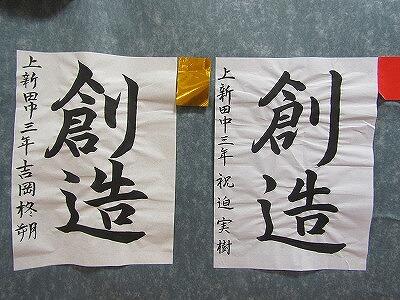 創造
上新田中三年 吉岡柊朔
創造
上新田中三年 祝迫実樹